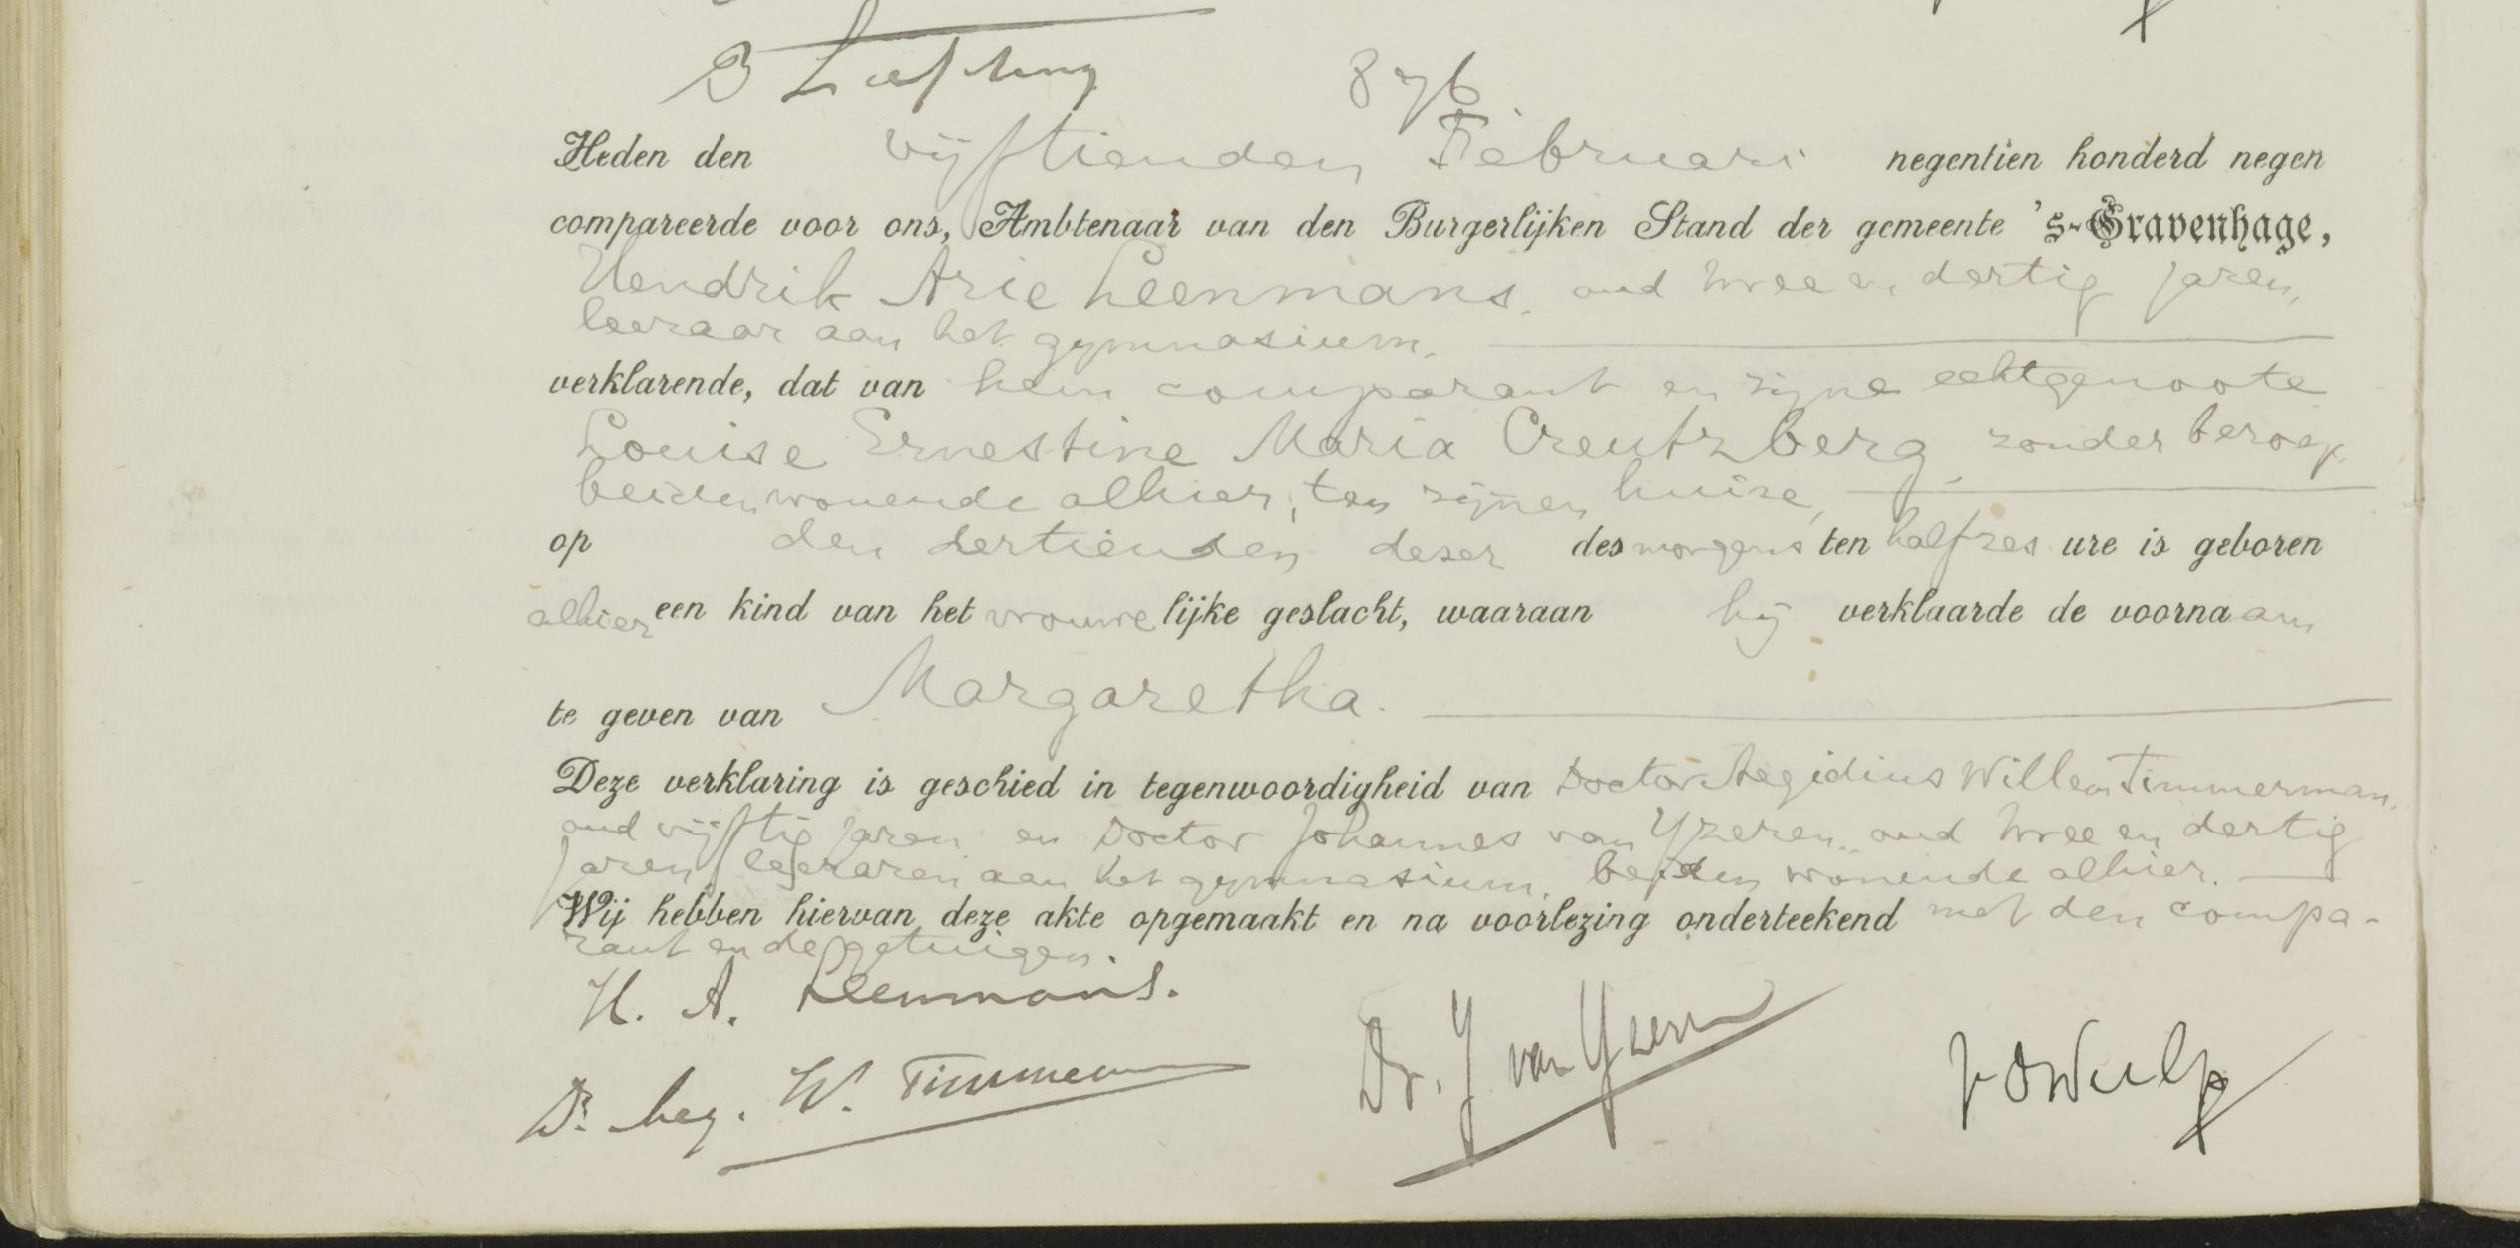 876
Heden den vijftienden Februari negentien honderd negen
compareerde voor ons, Ambtenaar van den Burgerlijken Stand der gemeente 's-Gravenhage,
Hendrik Arie Leenmans, oud twee en dertig jaren,
leeraar aan het gymnasium,
verklarende, dat van hem comparant en zijne echtgenoote
Louise Ernestine Maria Creutzberg, zonder beroep,
beiden wonende alhier, ten zijnen huize,
op den dertienden dezer des morgens ten half zes ure is geboren
alhier een kind van het vrouwelijke geslacht, waaraan hij verklaarde de voornaam
te geven van Margaretha.
Deze verklaring is geschied in tegenwoordigheid van Doctor Aegidius Willem Timmerman,
oud vijftig jaren en Doctor Johannes van IJzeren, oud twee en dertig
jaren, leeraren aan het gymnasium, beiden wonende alhier.
Wij hebben hiervan deze akte opgemaakt en na voorlezing onderteekend met den compa-
rant en de getuigen.
H. A. Leenmans.
Dr. Aeg. W. Timmerman
Dr. J. van IJzeren